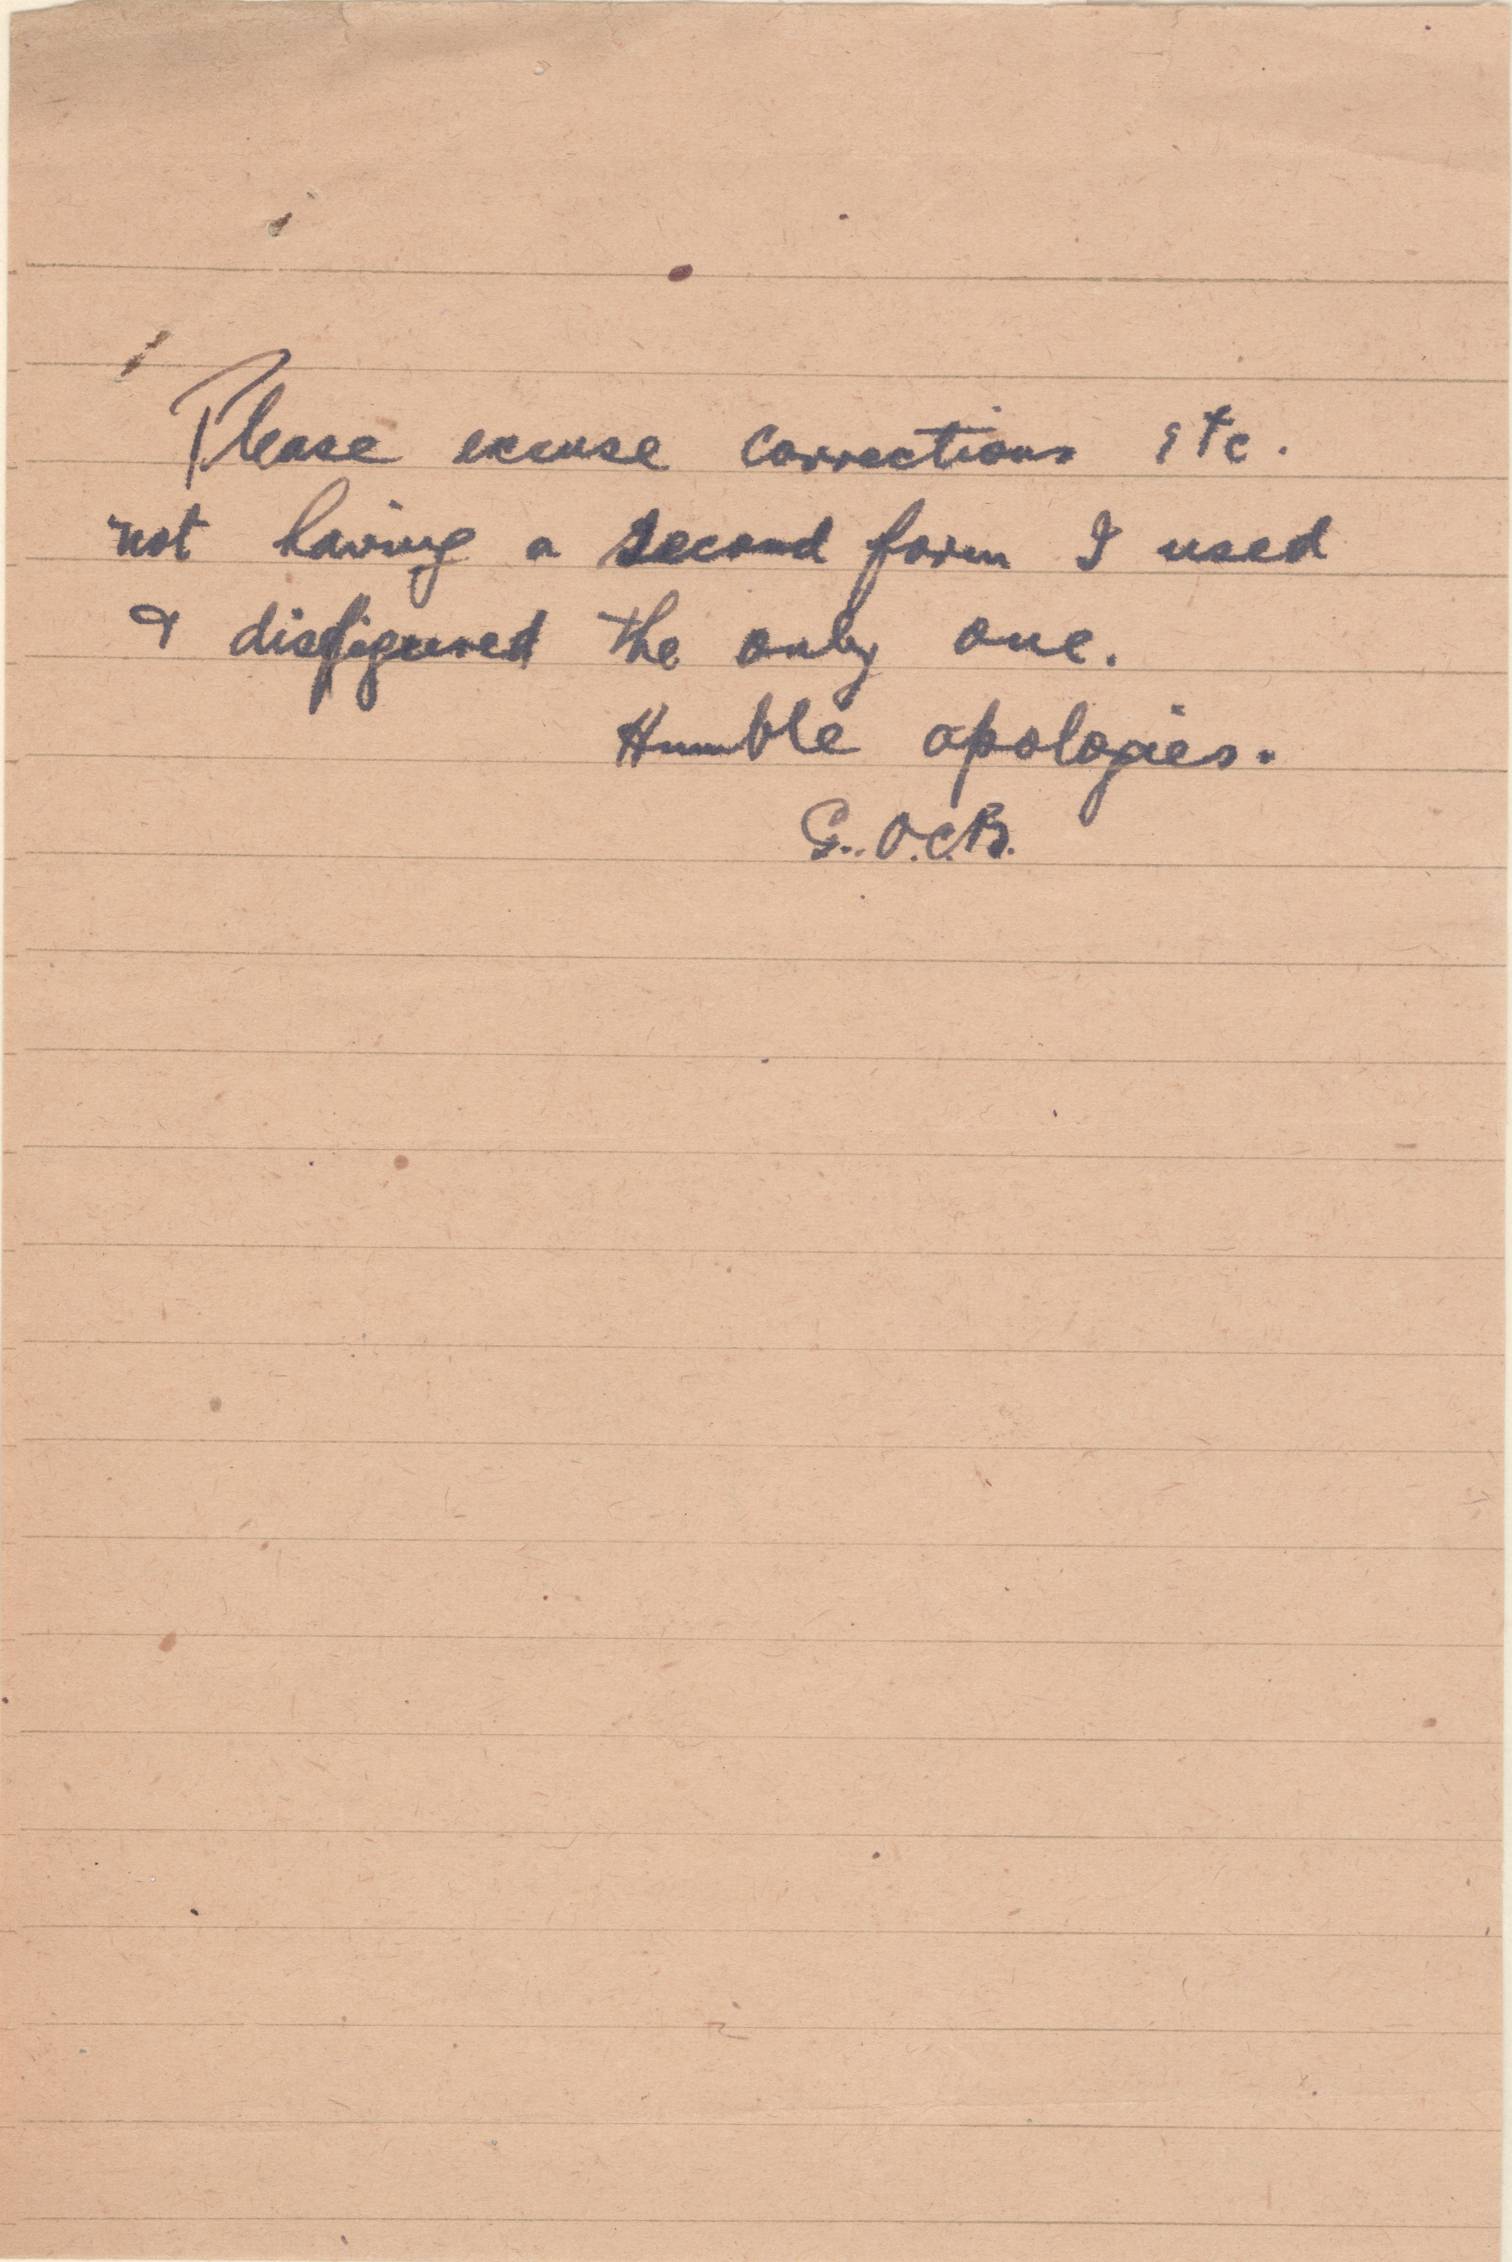 Please excuse corrections etc.
not having a second form I used
& disfigured the only one.
Humble apologies.
G. O.C.B.